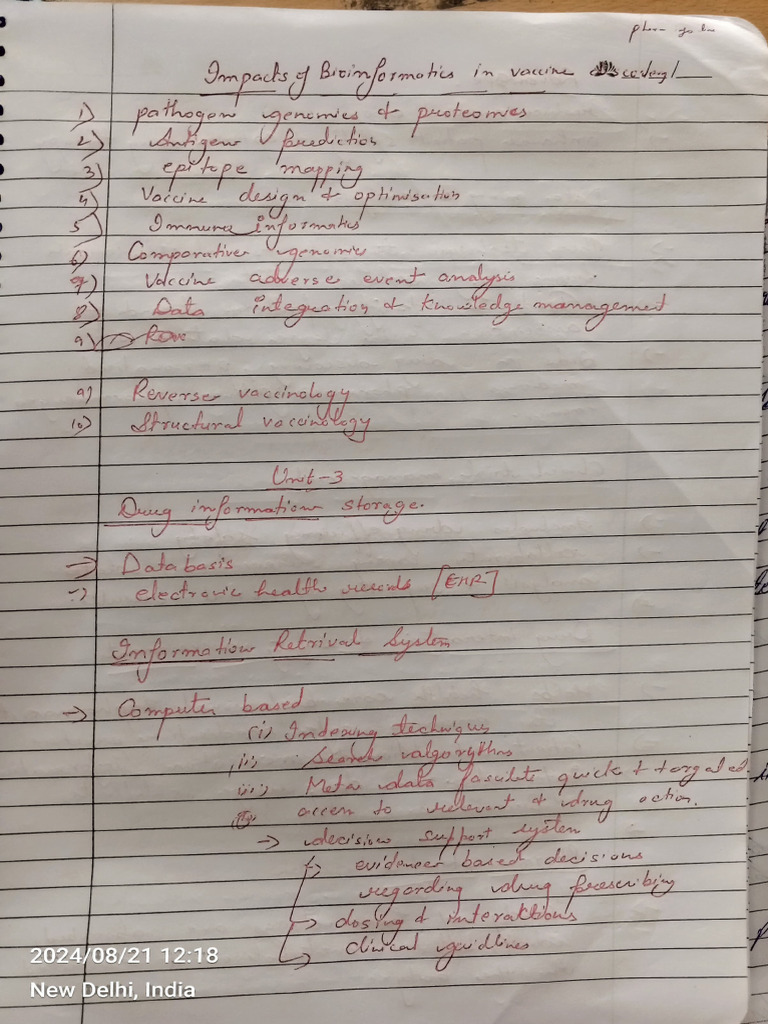 Impacts of Bioinformatics in vaccine
1) pathogen genomics & proteomics
2) Antigene prediction
3) epitope mapping
4) Vaccine design & optimisation
5) Immune informatics
6) Comparative genomics
7) Vaccine adverse event analysis
8) Data integration & knowledge management
9)
9) Reverse vaccinology
10) Structural vaccinology
Unit-3
Drug information storage.
→ Data basis
→ electronic health records [EHR]
Information Retrival System
→ Computer based
(i) Indexing techniques
(ii) Search
(iii) Meta data quick & targated
access to relevant & drug action.
→ decision support system
→ evidences based decisions
regarding drug prescribing
→ dosing & interaktions
→ clinical
2024/08/21 12:18
New Delhi, India